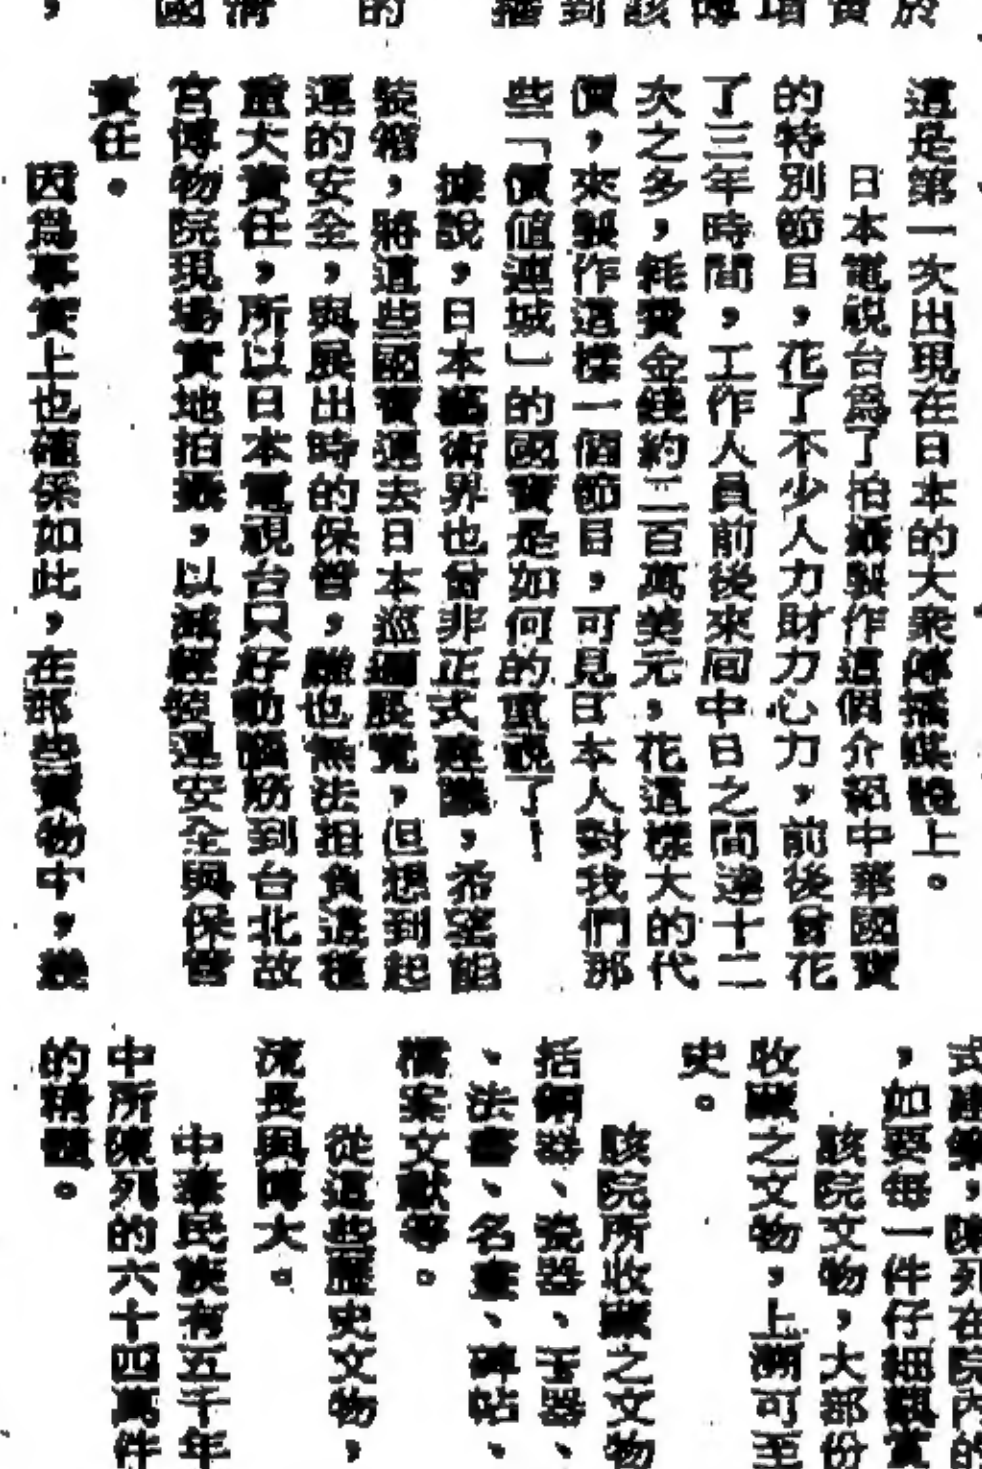 這是第一次出現在日本的大衆傳播媒體上。
日本電視台爲了拍攝製作這個介紹中華國寶
的特別節目，花了不少人力財力心力，前後曾花
了三年時間，工作人員前後來回中日之間達十二
次之多，耗費金錢約二百萬美元，花這樣大的代
價，來製作這樣一個節目，可見日本人對我們那
些「價值連城」的國寶是如何的重視了！
據說，日本藝術界也曾非正式建議，希望能
裝箱，將這些國寶運去日本巡迴展覽，但想到起
運的安全，與展出時的保管，誰也無法担負這種
重大責任，所以日本電視台只好動腦筋到台北故
宮博物院現場實地拍攝，以減輕裝運安全與保管
責任。
因爲事實上也確係如此，在那些寶物中，幾
式建築，陳列在院內的
，如要每一件仔細觀賞
該院文物，大部份
收藏之文物，上溯可至
史。
該院所收藏之文物
括銅器、瓷器、玉器、
、法書、名畫、碑帖、
檔案文獻等。
從這些歷史文物，
流長與博大。
中華民族有五千年
中所陳列的六十四萬件
的精髓。